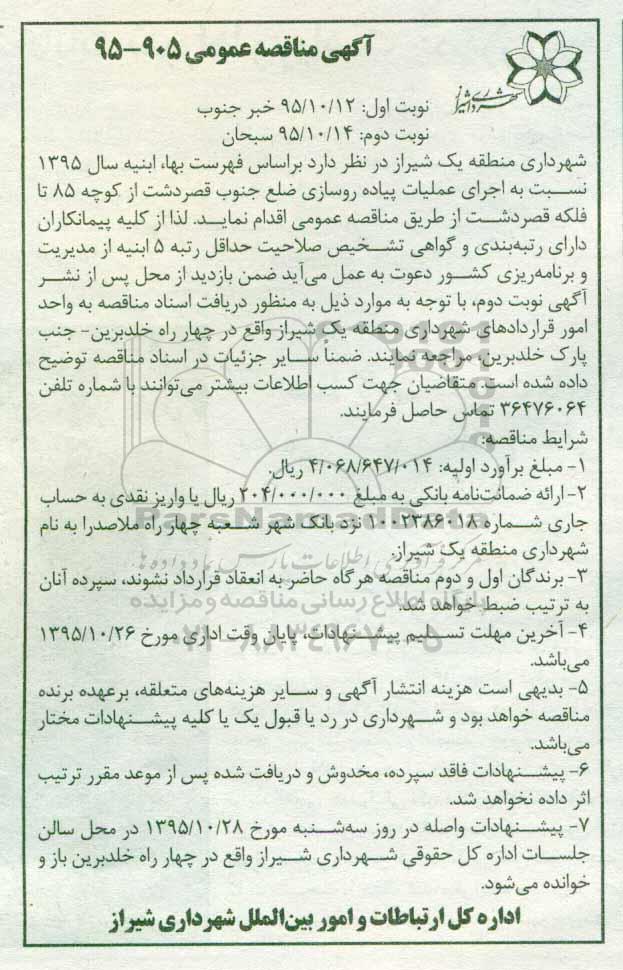 آگهی مناقصه عمومی ۹۰۵-۹۵
شهرداری شیراز
نوبت اول: ۹۵/۱۰/۱۲ خبر جنوب
نوبت دوم: ۹۵/۱۰/۱۴ سبحان
شهرداری منطقه یک شیراز در نظر دارد براساس فهرست بهاء ابنیه سال ۱۳۹۵
نسبت به اجرای عملیات پیاده روسازی ضلع جنوب قصردشت از کوچه ۸۵ تا
فلکه قصردشت از طریق مناقصه عمومی اقدام نماید. لذا از کلیه پیمانکاران
دارای رتبه‌بندی و گواهی تشخیص صلاحیت حداقل رتبه ۵ ابنیه از مدیریت
و برنامه‌ریزی کشور دعوت به عمل می‌آید ضمن بازدید از محل پس از نشر
آگهی نوبت دوم، با توجه به موارد ذیل به منظور دریافت اسناد مناقصه به واحد
امور قراردادهای شهرداری منطقه یک شیراز واقع در چهار راه خلدبرین- جنب
پارک خلدبرین، مراجعه نمایند. ضمنا سایر جزئیات در اسناد مناقصه توضیح
داده شده است. متقاضیان جهت کسب اطلاعات بیشتر می‌توانند با شماره تلفن
۳۶۴۷۶۰۶۴ تماس حاصل فرمایند.
شرایط مناقصه:
۱- مبلغ برآورد اولیه: ۴/۰۶۸/۶۴۷/۰۱۴ ریال.
۲- ارائه ضمانت‌نامه بانکی به مبلغ ۲۰۴/۰۰۰/۰۰۰ ریال یا واریز نقدی به حساب
جاری شماره ۱۰۰۲۳۸۶۰۱۸ نزد بانک شهر شعبه چهار راه ملاصدرا به نام
شهرداری منطقه یک شیراز.
۳- برندگان اول و دوم مناقصه هرگاه حاضر به انعقاد قرارداد نشوند، سپرده آنان
به ترتیب ضبط خواهد شد.
۴- آخرین مهلت تسلیم پیشنهادات، پایان وقت اداری مورخ ۱۳۹۵/۱۰/۲۶
می‌باشد.
۵- بدیهی است هزینه انتشار آگهی و سایر هزینه‌های متعلقه، برعهده برنده
مناقصه خواهد بود و شهرداری در رد یا قبول یک یا کلیه پیشنهادات مختار
می‌باشد.
۶- پیشنهادات فاقد سپرده، مخدوش و دریافت شده پس از موعد مقرر ترتیب
اثر داده نخواهد شد.
۷- پیشنهادات واصله در روز سه‌شنبه مورخ ۱۳۹۵/۱۰/۲۸ در محل سالن
جلسات اداره کل حقوقی شهرداری شیراز واقع در چهار راه خلدبرین باز و
خوانده می‌شود.
اداره کل ارتباطات و امور بین‌الملل شهرداری شیراز
ParsNamadData
مرکز فرآوری اطلاعات پارس نماد داده‌ها
پایگاه اطلاع رسانی مناقصه و مزایده
۰۲۱-۸۸۳۴۹۶۷۰-۵